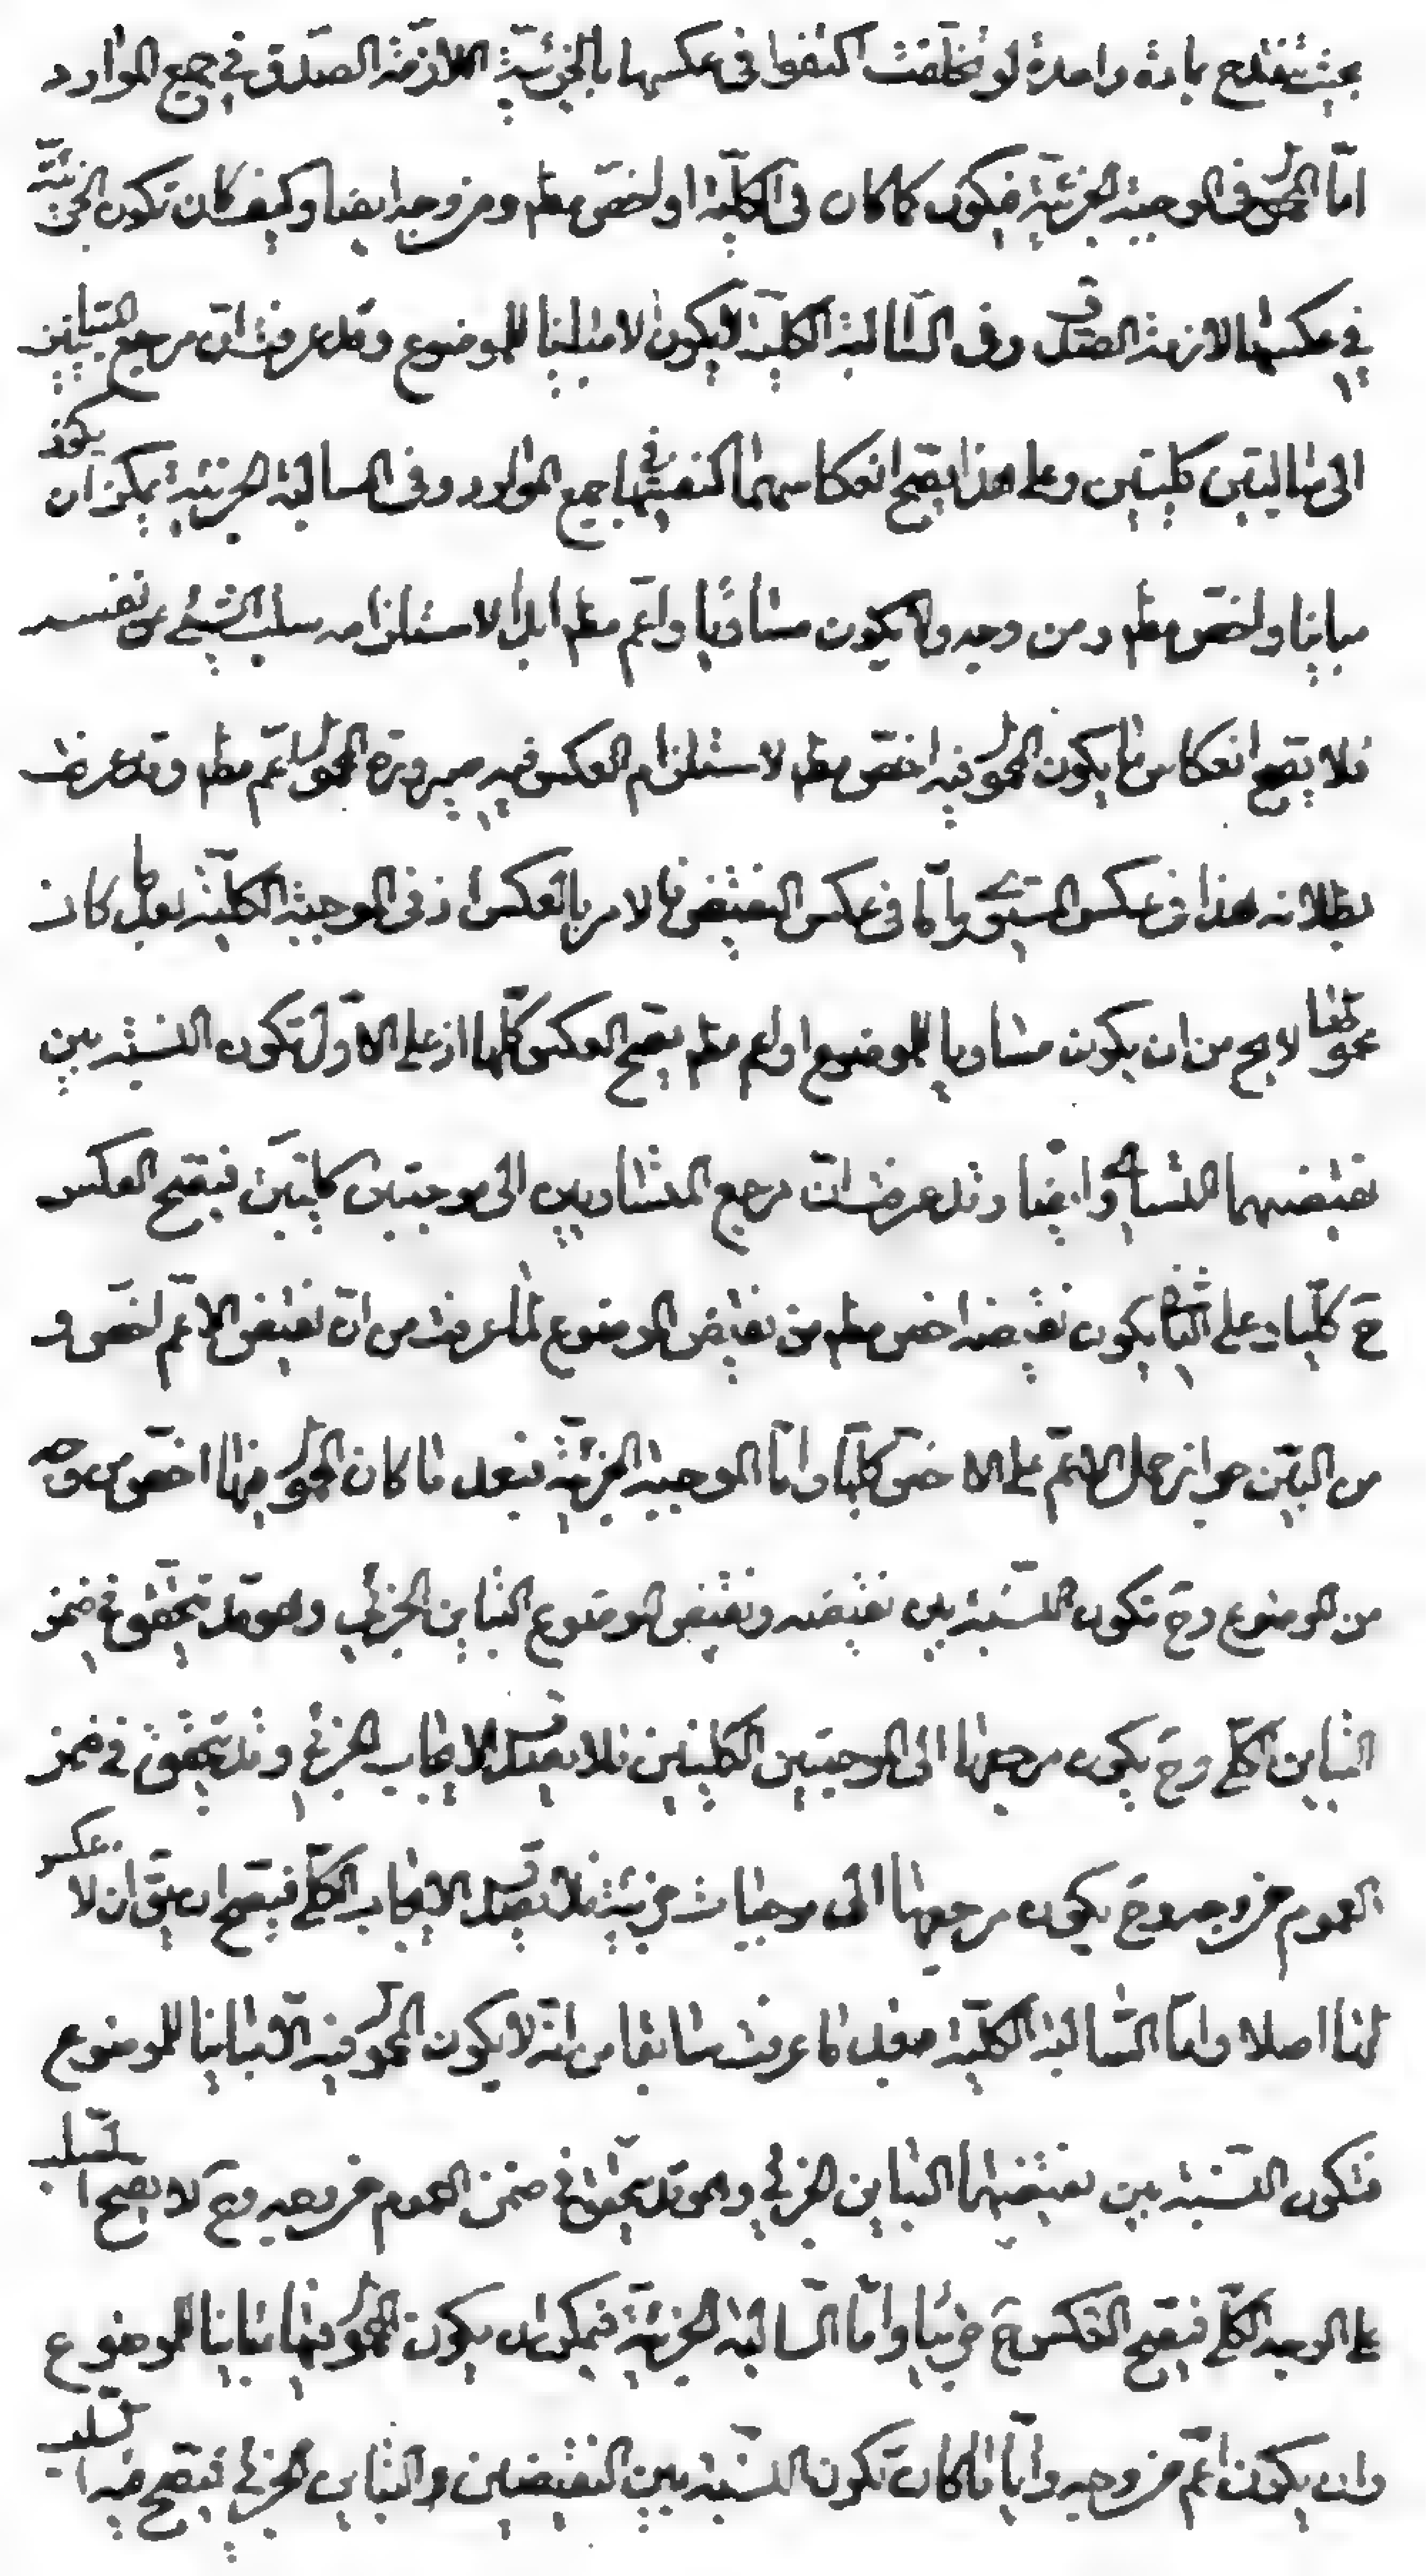 بحيث ينقدح بمادة واحدة لو تخلفت اكتفوا فى عكسها بالجزئيّة اللازمة الصّدق فى جميع الموارد
امّا المحمول فى الموجبة الجزئيّة فيكون كما كان فى الكليّة او اخصّ مطلقا ومن وجه ايضا وكيف كان تكون الجزئيّة
فى عكسها لازمة الصّدق وفى السّالبة الكليّة لا يكون الا مباينا للموضوع وقد عرفت انّ مرجع التباين
الى سالبتين كليتين وعلى هذا يصح انعكاسهما كنفسها فى جميع الموارد وفى السالبة الجزئية يمكن ان يكون
مباينا واخصّ مطم ومن وجه ولا يكون مساويا واعّم مطم ابدا لاستلزامه سلب الشيئ عن نفسه
فلا يصح انعكاس ما يكون المحمو فيه اخصّ مطم لاستلزام العكس فيه صيرورة المحمو اعّم مطم وقد عرفت
بطلانه هذا فى عكس المستوى وامّا فى عكس النقيض فالامر بالعكس اذ فى الموجبة الكليّة بعد ما كان
محمولها لا يخ من ان يكون مساويا للموضوع او اعم مطم يصح العكس كلّها اذ على الاوّل تكون النسبة بين
نقيضهما التساوى ايضا وقد عرفت انّ مرجع المتساويين الى موجبتين كليتين فيصح العكس
ح كليّا وعلى الثانى يكون نقيضه اخص مطم من نقيض الموضوع لما عرفت من انّ نقيض الاعّم اخصّ و
من البيّن جواز حمل الاعّم على الاخصّ كليّا وامّا الموجبة الجزئيّة فبعد ما كان المحمو فيها اخصّ من وجه
من الموضوع وح تكون النّسبة بين نقيضه ونقيض الموضوع التباين الجزئى وهو قد يتحقّق فى ضمن
التباين الكلّى وح يكون مرجعها الى الموجبتين الكليتين فلا يصدق الايجاب الجزئى وقد يتحقق فى ضمن
العموم من وجه وح يكون مرجعها الى موجبات جزئية فلا يصدق الايجاب الكلّى فيصح ان يقّ ان لا عكس
لها اصلا وامّا السّالبة الكليّة فبعد ما عرفت سابقا من انّه لا يكون المحمو فيه الا مباينا للموضوع
فتكون النسبة بين نقيضيهما التباين الجزئى وهو قد يتحقق فى ضمن العموم من وجه وح لا يصح السّلب
على الوجه الكلّى فيصح العكس ح جزئيا وامّا السّالبة الجزئيّة فيمكن ان يكون المحمو فيها مباينا للموضوع
وان يكون اعّم من وجه وايّا ما كان تكون النسبة بين النقيضين والتباين الجزئى فيصح فيه السّلب